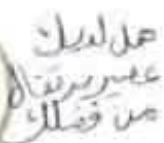 هل لديك
عصير برتقال
من فضلك